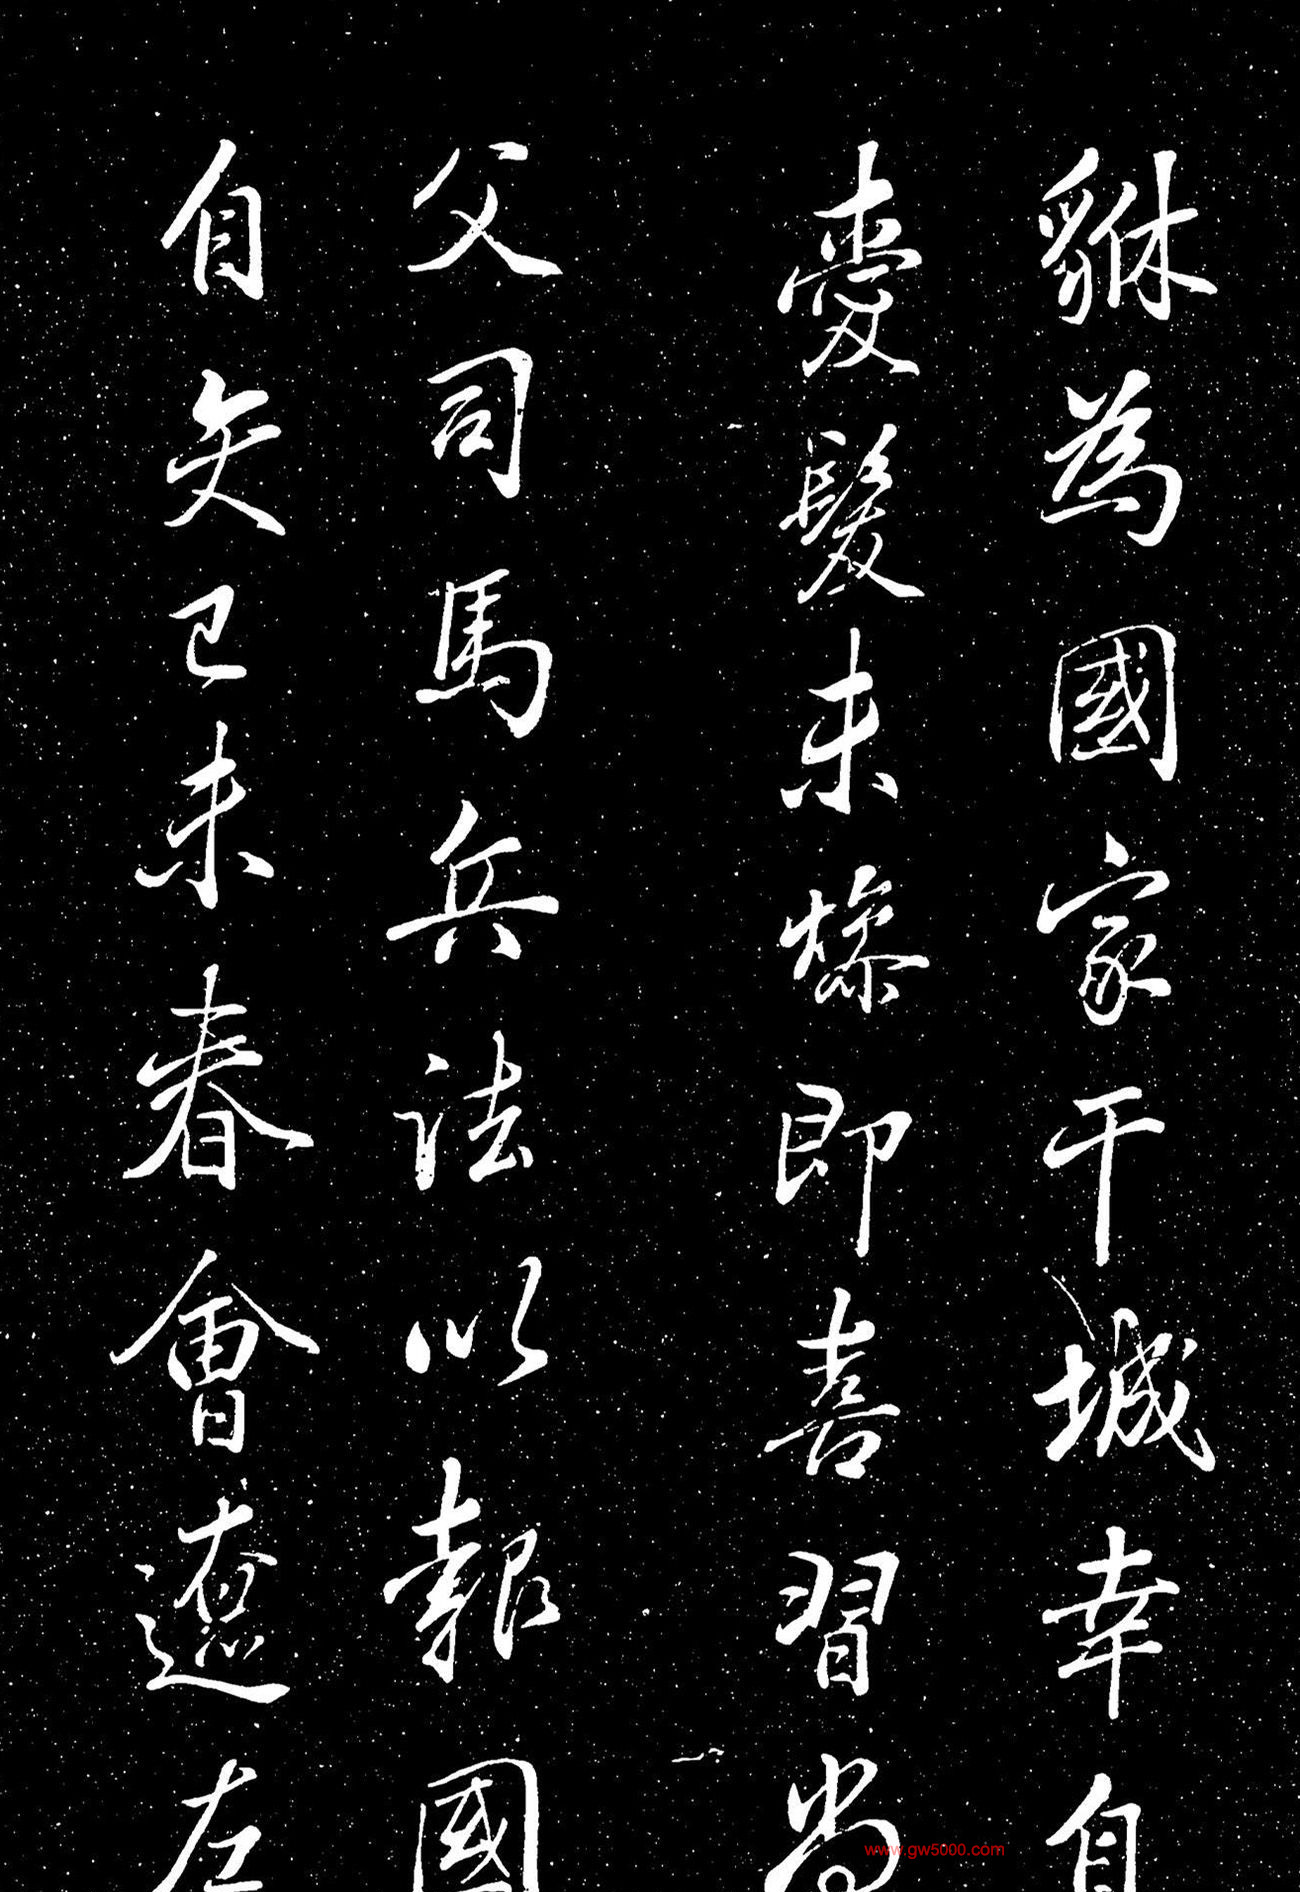 貅為國家干城幸自
髮未燥即喜習尚
父司馬兵法以報國
自矢己未春會遼左
www.gw5000.com